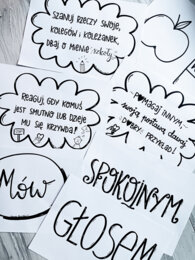 SZANUJ RZECZY SWOJE,
KOLEGÓW I KOLEŻANEK,
DBAJ O MIENIE szkoły
REAGUJ, GDY KOMUŚ
JEST SMUTNO LUB DZIEJE
MU SIĘ KRZYWDA!
POMAGAJ INNYM
swoją postawą dawaj
DOBRY PRZYKŁAD!
MÓW
SPOKOJNYM
GŁOSEM